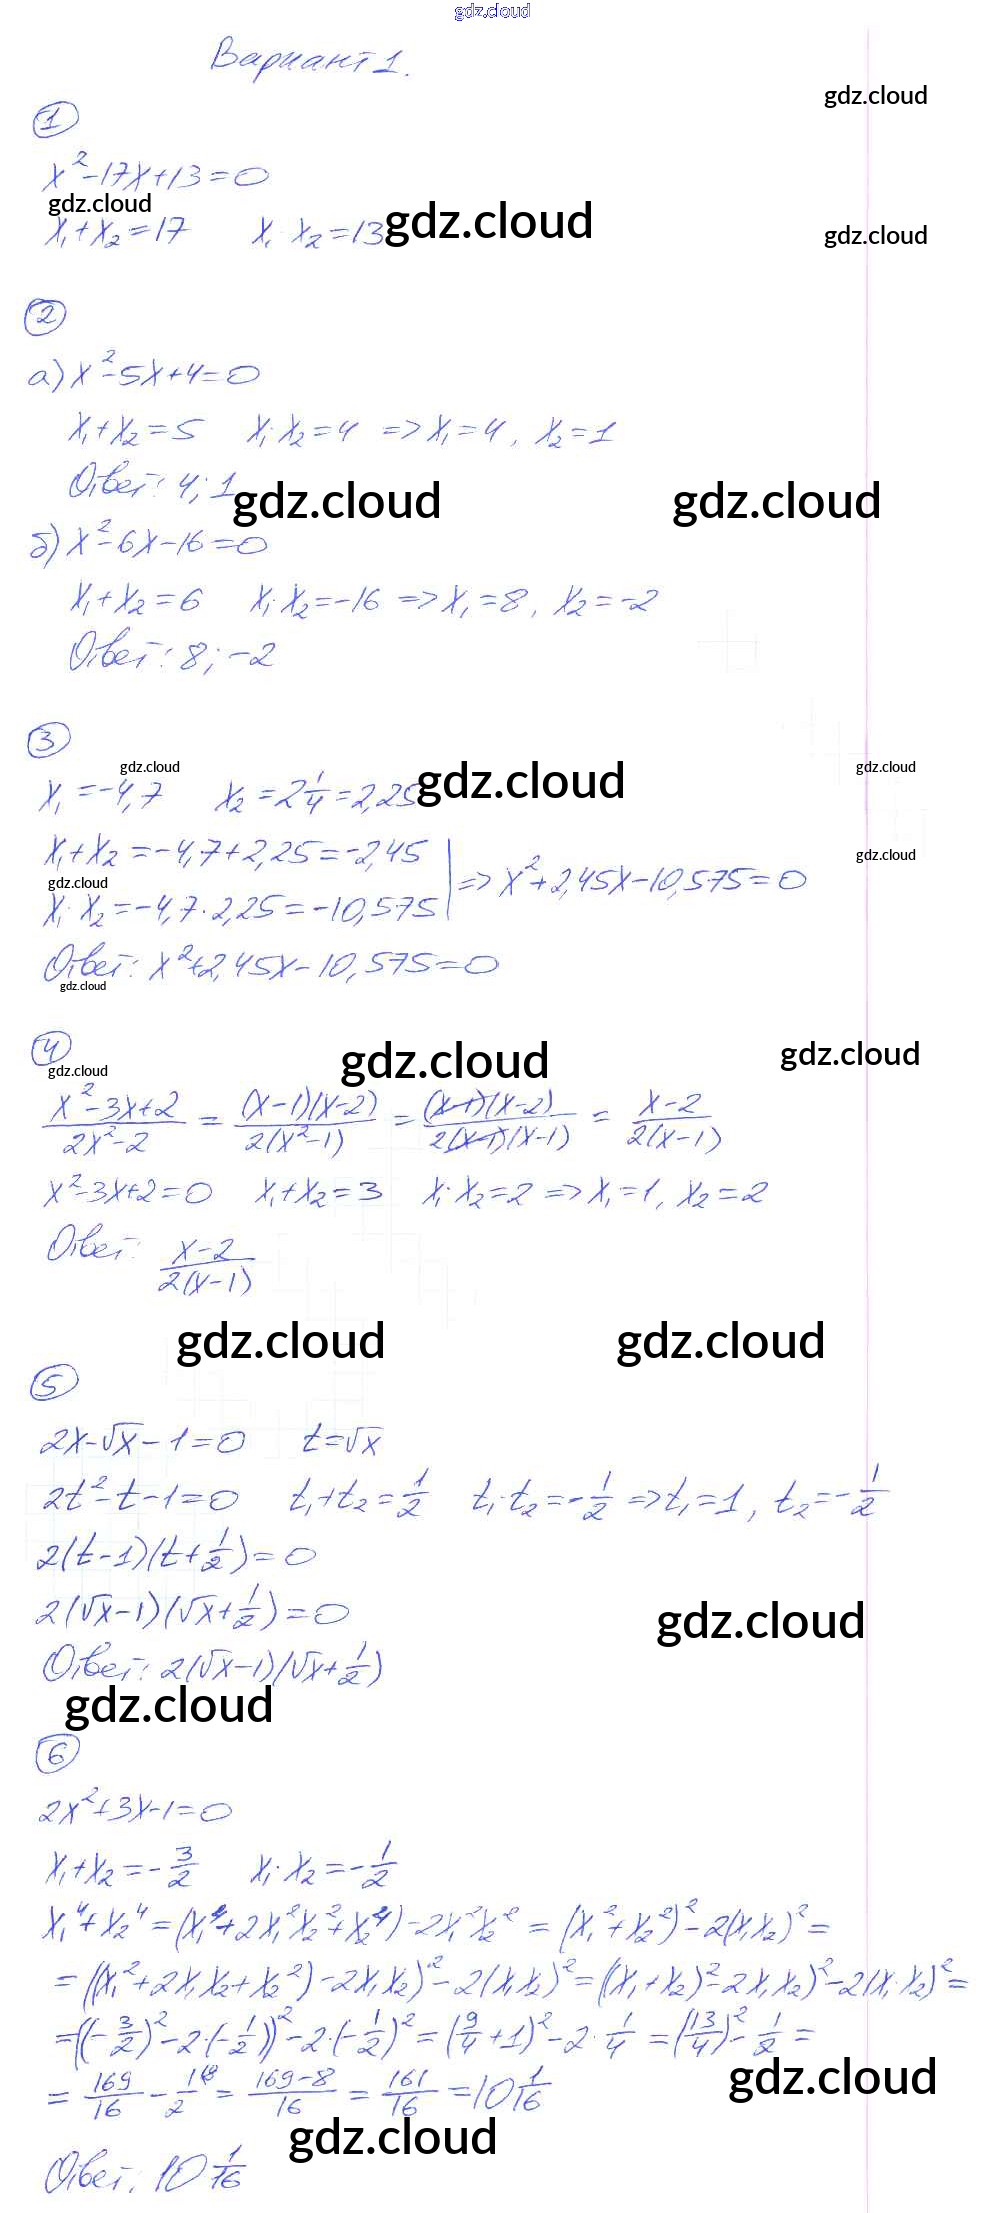 gdz.cloud
Вариант 1.
gdz.cloud
1
x²-17x+13=0
gdz.cloud
x₁+x₂=17 x₁·x₂=13
gdz.cloud
gdz.cloud
2
а) x²-5x+4=0
x₁+x₂=5 x₁·x₂=4 => x₁=4, x₂=1
Ответ: 4; 1
gdz.cloud gdz.cloud
б) x²-6x-16=0
x₁+x₂=6 x₁·x₂=-16 => x₁=8, x₂=-2
Ответ: 8; -2
3
gdz.cloud gdz.cloud gdz.cloud
x₁=-4,7 x₂=2 1/4=2,25
x₁+x₂=-4,7+2,25=-2,45
gdz.cloud
gdz.cloud
x₁·x₂=-4,7·2,25=-10,575 | => x²+2,45x-10,575=0
Ответ: x²+2,45x-10,575=0
gdz.cloud
4
gdz.cloud gdz.cloud
gdz.cloud
(x²-3x+2)/(2x²-2) = ((x-1)(x-2))/(2(x²-1)) = ((x-1)(x-2))/(2(x-1)(x-1)) = (x-2)/(2(x-1))
x²-3x+2=0 x₁+x₂=3 x₁·x₂=2 => x₁=1, x₂=2
Ответ: (x-2)/(2(x-1))
gdz.cloud gdz.cloud
5
2x-√x-1=0 t=√x
2t²-t-1=0 t₁+t₂=1/2 t₁·t₂=-1/2 => t₁=1, t₂=-1/2
2(t-1)(t+1/2)=0
2(√x-1)(√x+1/2)=0
gdz.cloud
Ответ: 2(√x-1)(√x+1/2)
gdz.cloud
6
2x²+3x-1=0
x₁+x₂=-3/2 x₁·x₂=-1/2
x₁⁴+x₂⁴=(x₁⁴+2x₁²x₂²+x₂⁴)-2x₁²x₂²=(x₁²+x₂²)²-2(x₁x₂)²=
=((x₁²+2x₁x₂+x₂²)-2x₁x₂)²-2(x₁x₂)²=((x₁+x₂)²-2x₁x₂)²-2(x₁·x₂)²=
=((-3/2)²-2·(-1/2))²-2·(-1/2)²=(9/4+1)²-2·1/4=(13/4)²-1/2=
gdz.cloud
=169/16-1/2\8=(169-8)/16=161/16=10 1/16
gdz.cloud
Ответ: 10 1/16